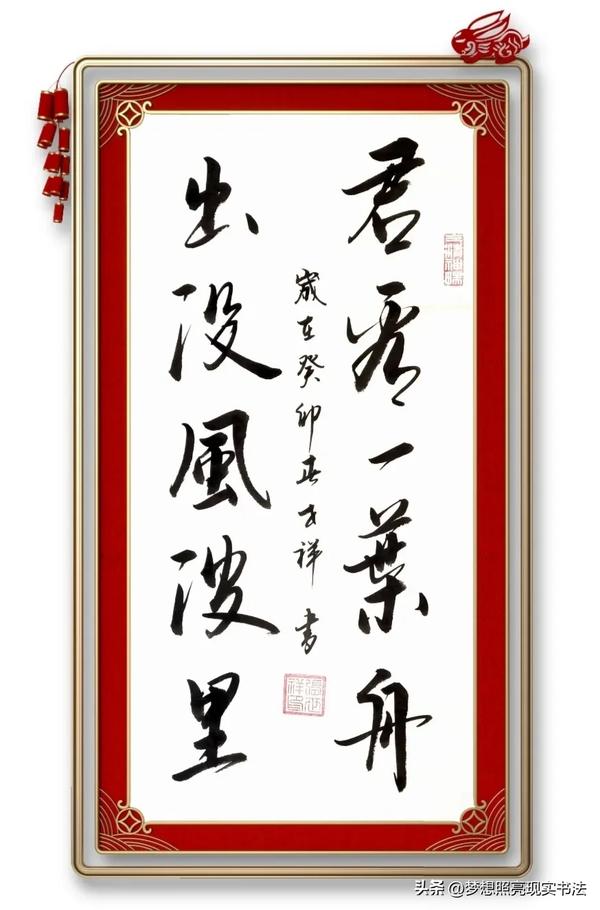 君看一葉舟
出没風波里
歲在癸卯 祥 書
头条 @梦想照亮现实书法